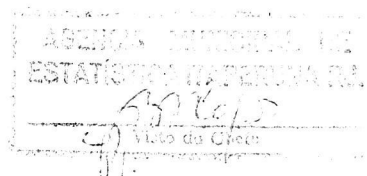 AGENCIA MUNICIPAL DE
ESTATÍSTICA ITAPERUNA RJ
Visto do Chefe